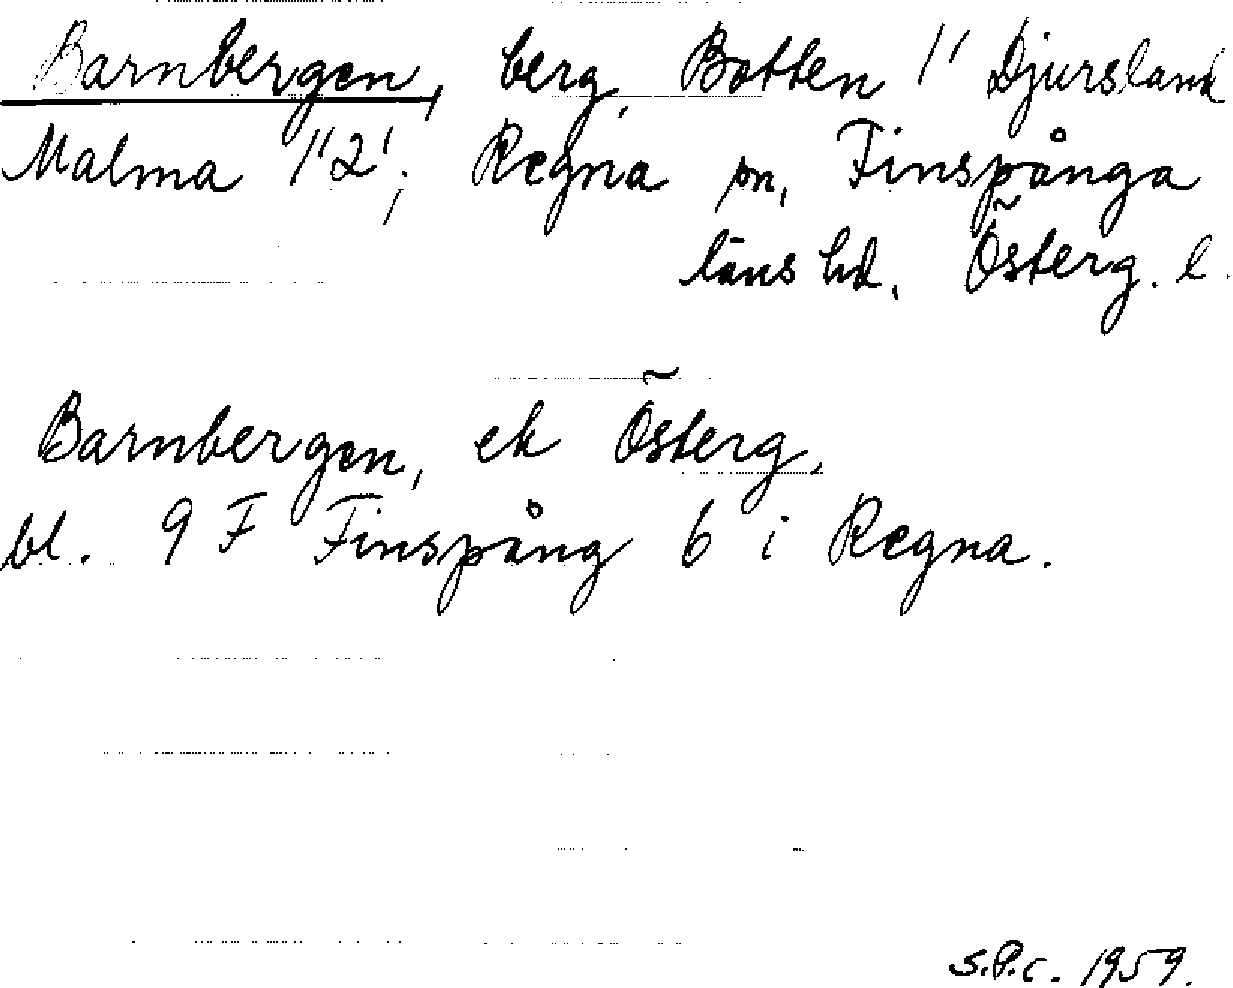 Barnbergen, berg, Botten 1' Djursland
Malma 1'2'; Regna sn, Finspånga
läns hd, Österg. l.
Barnbergen, ek Österg,
bl. 9 F Finspång 6 i Regna.
S.P.C. 1959.